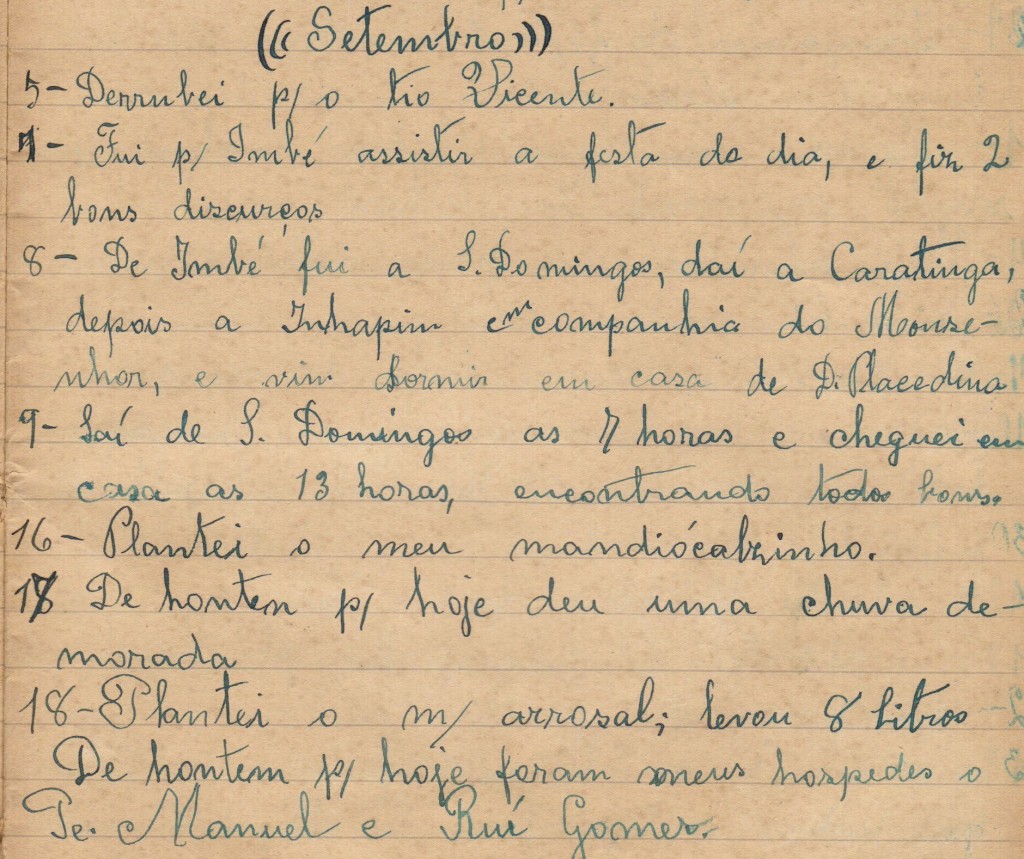 ((( Setembro )))
5- Derrubei p/ o tio Vicente.
7- Fui p/ Imbé assistir a festa do dia, e fiz 2
bons discurços
8- De Imbé fui a S. Domingos, daí a Caratinga,
depois a Inhapim em companhia do Monse-
nhor, e vim dormir em casa de D. Placedina
9- Saí de S. Domingos as 7 horas e cheguei em
casa as 13 horas, encontrando todos bons.
16- Plantei o meu mandiócalzinho.
17 De hontem p/ hoje deu uma chuva de-
morada
18- Plantei o m/ arrosal; levou 8 litros
De hontem p/ hoje foram meus hospedes o
Te. Manuel e Ruí Gomes.